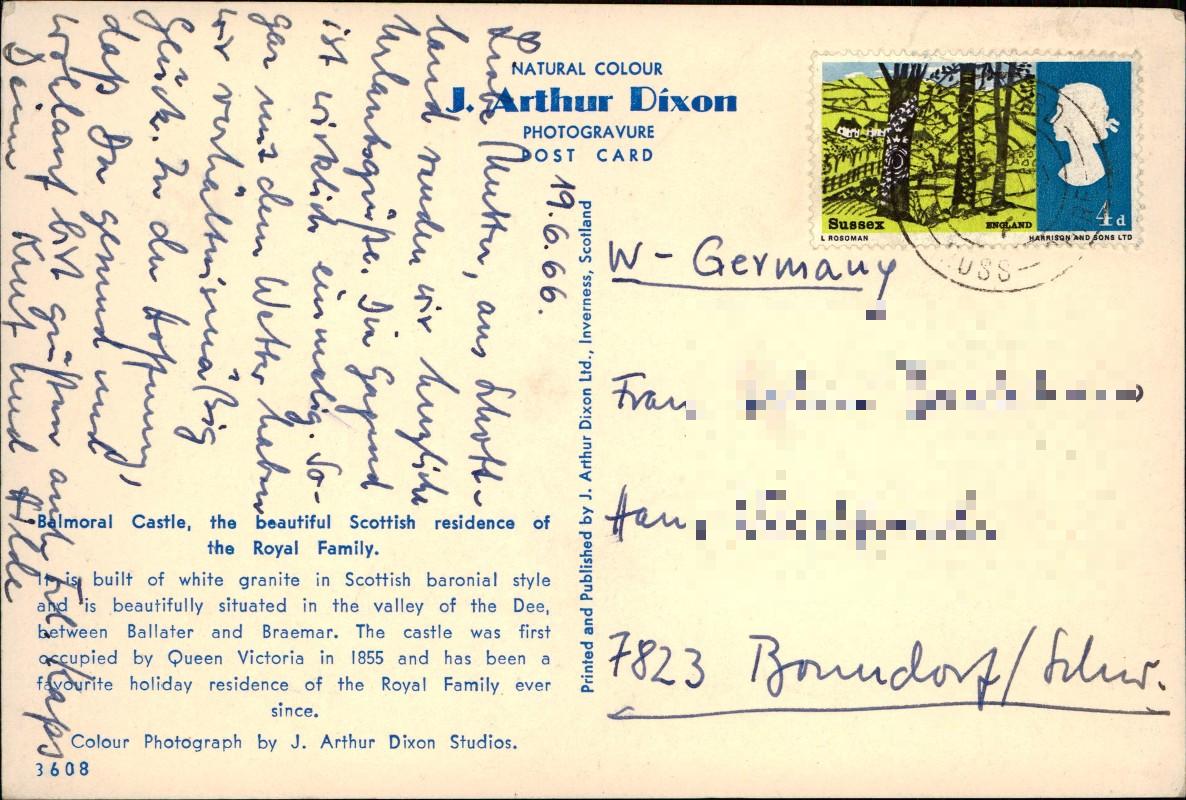 NATURAL COLOUR
J. Arthur Dixon
PHOTOGRAVURE
POST CARD
Sussex
ENGLAND
4d
L ROSOMAN
HARRISON AND SONS LTD
USS
19.6.66.
Liebe Mutter, aus Schott-
land senden wir herzliche
Urlaubsgrüße. Die Gegend
ist wirklich einmalig. So-
gar mit dem Wetter haben
wir verhältnismäßig
Glück. In der Hoffnung,
daß Du gesund und
wohlauf bist grüßen auch Frl. Kaps
Deine Knut und Hilde
Printed and Published by J. Arthur Dixon Ltd., Inverness, Scotland
W-Germany
Frau
Haus
7823 Bonndorf/Schw.
Balmoral Castle, the beautiful Scottish residence of
the Royal Family.
It is built of white granite in Scottish baronial style
and is beautifully situated in the valley of the Dee,
between Ballater and Braemar. The castle was first
occupied by Queen Victoria in 1855 and has been a
favourite holiday residence of the Royal Family ever
since.
Colour Photograph by J. Arthur Dixon Studios.
3608